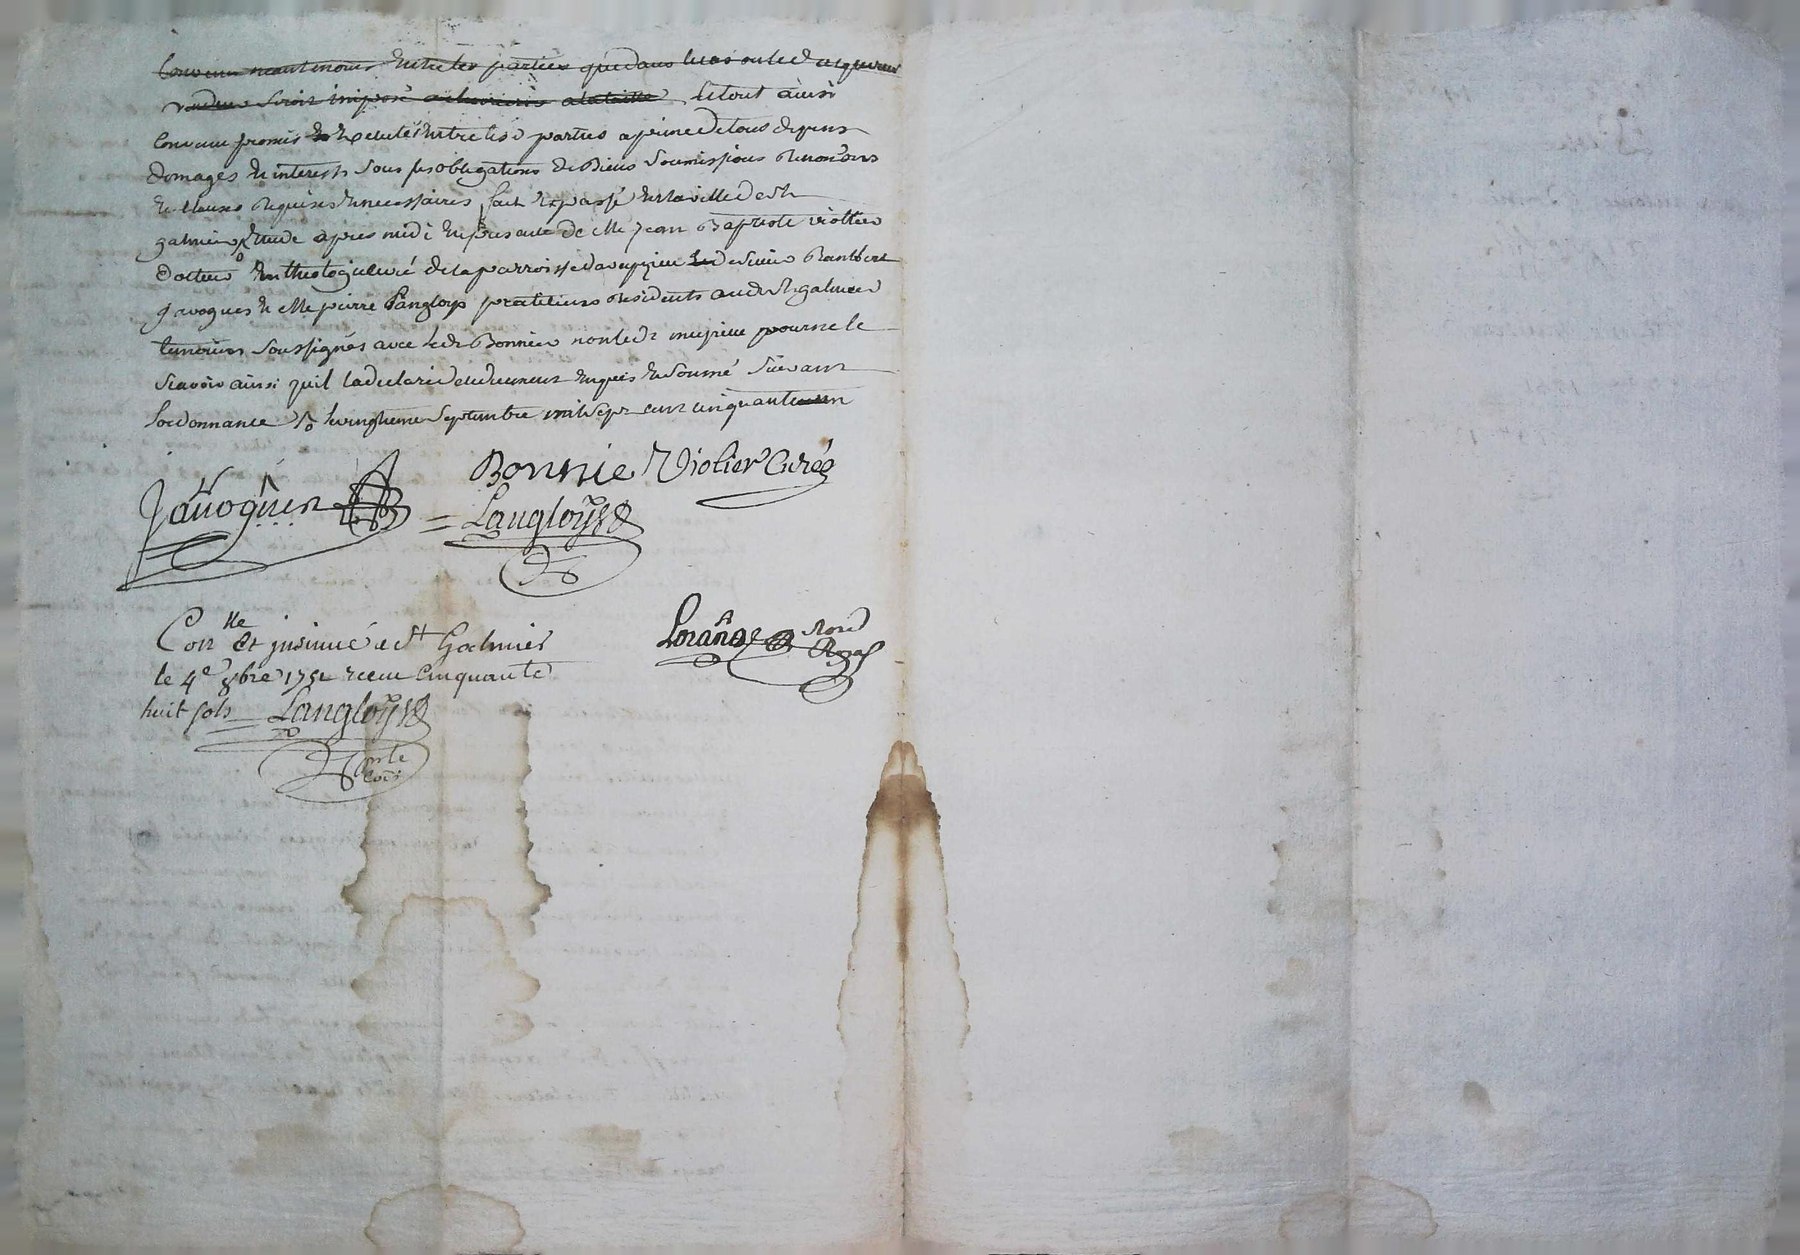 Convenu neantmoins Entre les parties que dans le cas ou led acquereur
vendeur seroit imposé a la taille le tout ainsi
Convenu promis Executé Entre lesd parties a peine de tous depens
domages Et interests sous les obligations de Biens soumissions Renon'ons
Et clauses Requises Et necessaires fait Et passé En la ville de st
galmier Etude apres midi En presence de Me jean Baptiste violier
Docteur En theologie curé de la parroisse d'aveyzieu de sieur Rambert
javogues Et Me pierre Langloys praticiens Residents aud st galmier
temoins soussignés avec led Bonnier non led pour ne le
scavoir ainsi qu'il la declaré de ce deuement Enquis Et sommé suivant
lordonnance le vingtieme septembre mil sept cent cinquante un
Bonnie Violier Curé
Javogues
Langloys
Con lle Et insinué a st Galmier
le 4e 8bre 1751 receu Cinquante
huit sols Langloys
Nore
Royal